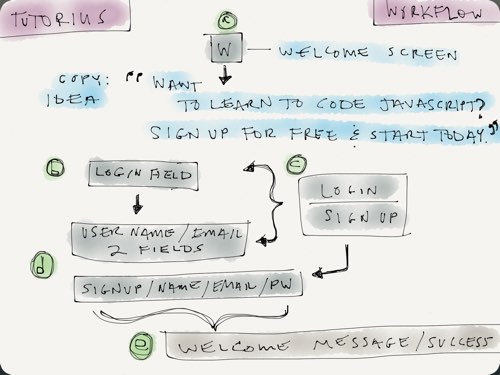 TUTORIUS
WORKFLOW
a
W — WELCOME SCREEN
COPY: " WANT
IDEA
TO LEARN TO CODE JAVASCRIPT?
SIGN UP FOR FREE & START TODAY."
b
LOGIN FIELD
c
LOGIN
SIGN UP
USER NAME/EMAIL
2 FIELDS
d
SIGNUP/NAME/EMAIL/PW
e
WELCOME MESSAGE/SUCCESS